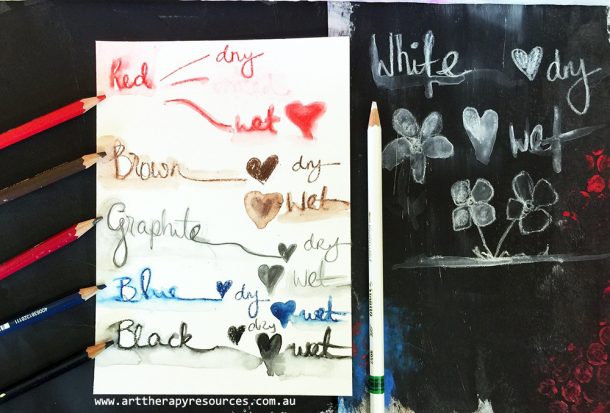 Red dry
wet
Brown dry
wet
Graphite dry
wet
Blue dry
wet
Black dry
wet
www.arttherapyresources.com.au
White dry
wet